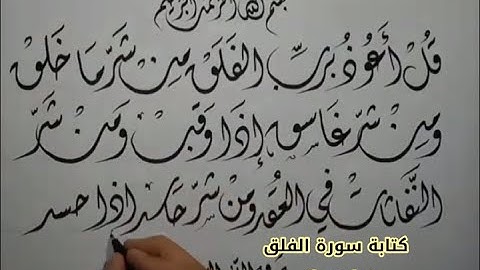 بسم الله الرحمن الرحيم
قل أعوذ برب الفلق من شر ما خلق
ومن شر غاسق إذا وقب ومن شر
النفاثات في العقد ومن شر حاسد اذا حسد
كتابة سورة الفلق